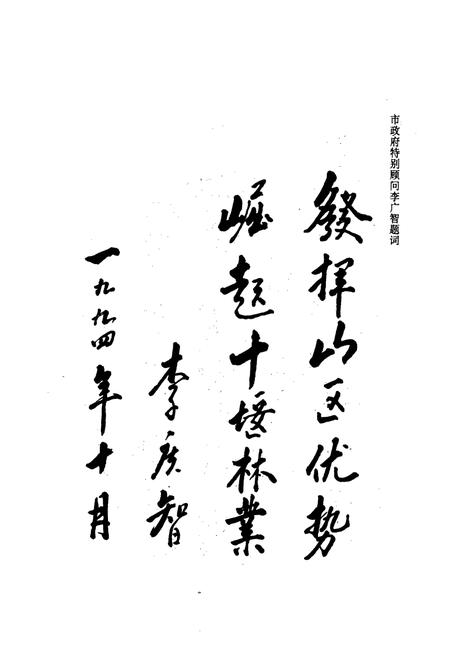 市政府特别顾问李广智题词
發挥山区优势
崛起十堰林業
李广智
一九九四年十月